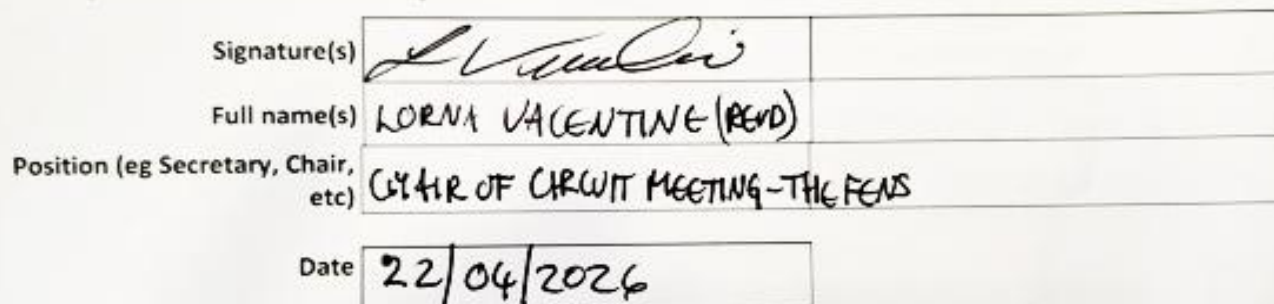 Signature(s) L Valentine
Full name(s) LORNA VALENTINE (REVD)
Position (eg Secretary, Chair,
etc) CHAIR OF CIRCUIT MEETING - THE FENS
Date 22/04/2026